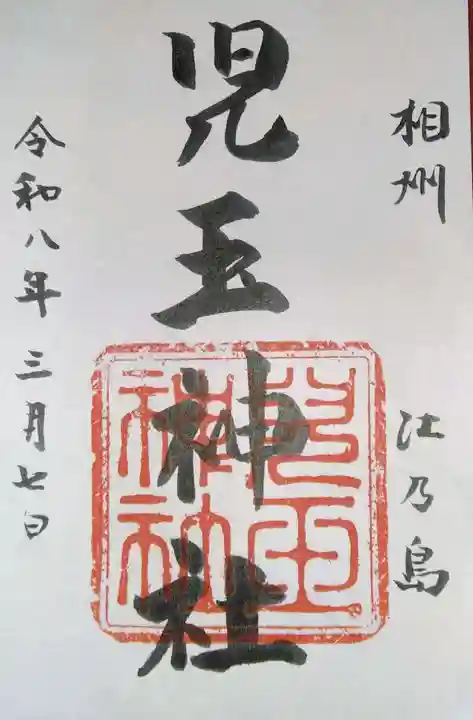 相州 江乃島
児玉神社
令和八年三月七日
兒玉
神社